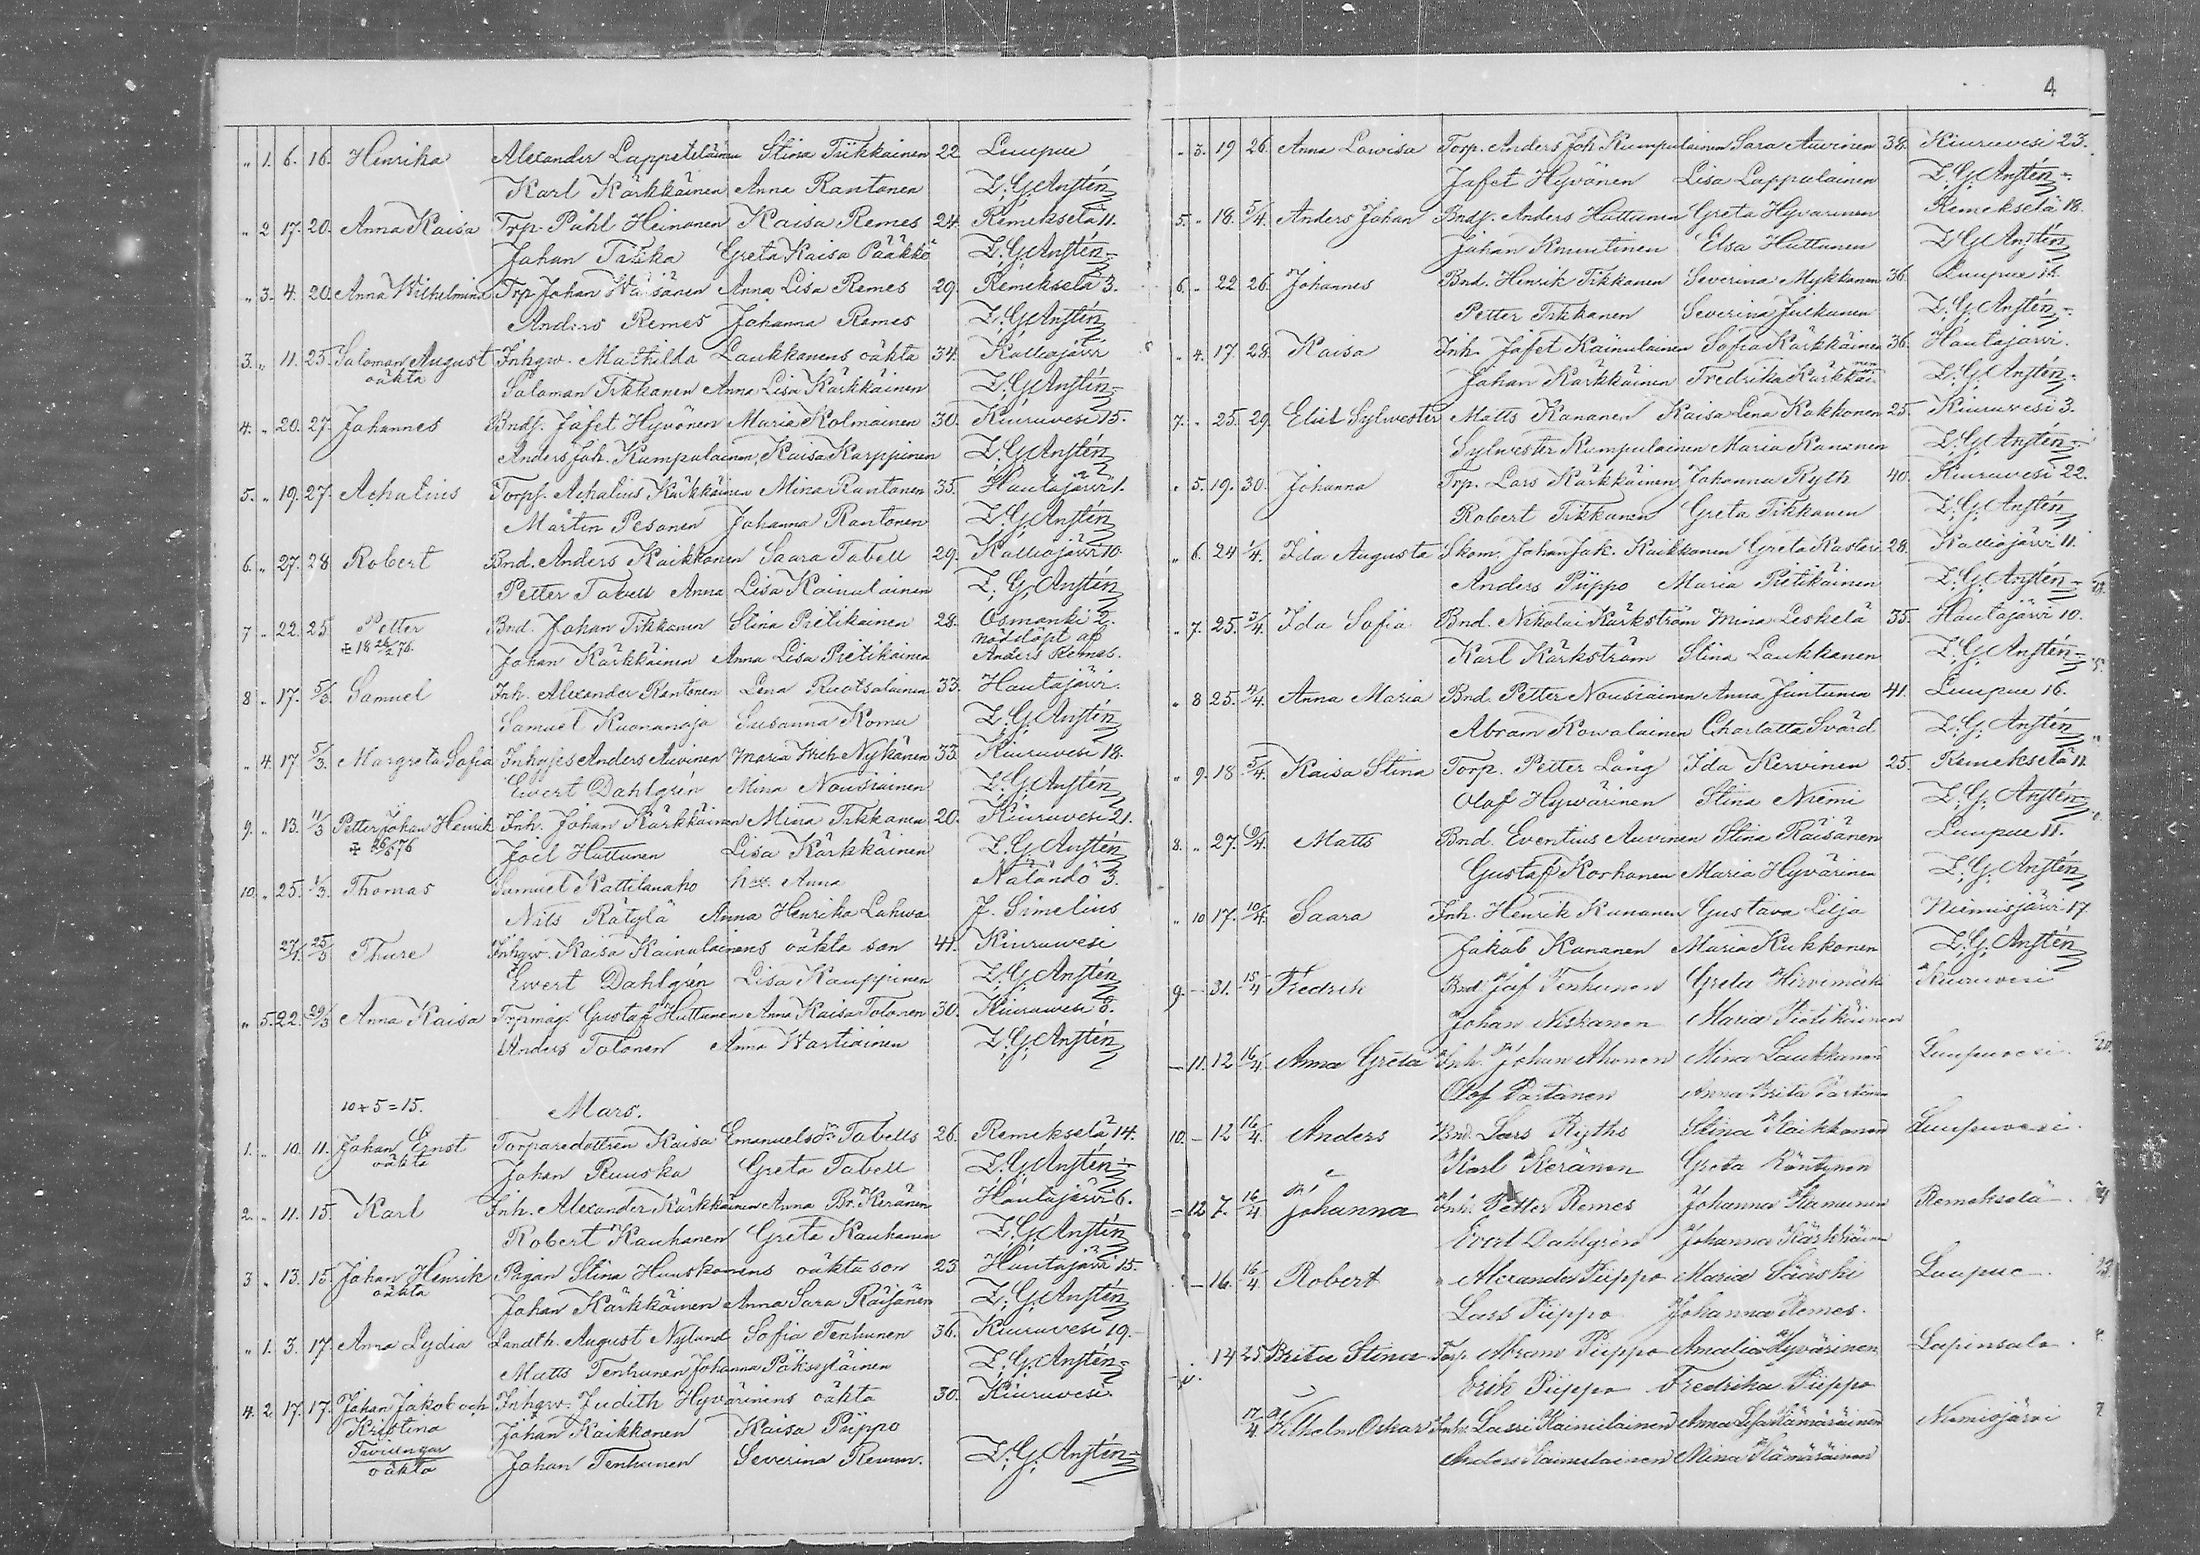 " 1. 6. 16. Henrika Alexander Lappeteläinen Stina Tikkainen 22 Luupue
Karl Kärkkäinen Anna Rantonen Z. G. Anstén
" 2 17. 20. Anna Kaisa Trp. Påhl Heinonen Kaisa Remes 24. Remekselä 11.
Johan Taska Greta Kaisa Pääkkö Z. G. Anstén
" 3. 4. 20. Anna Wilhelmina Trp Johan Wäisänen Anna Lisa Remes 29. Remekselä 3.
Anders Remes Johanna Remes Z. G. Anstén
3. " 11. 25. Saloman August Inhqw. Mathilda Laukkanens oäkta 34. Kalliojärvi
oäkta Saloman Tikkanen Anna Lisa Kärkkäinen Z. G. Anstén
4. " 20. 27. Johannes Bndf. Jafet Hyvönen Maria Kolmainen 30. Kiuruvesi 15.
Anders Joh. Kumpulainen Kaisa Karppinen Z. G. Anstén
5. " 19. 27. Achatius Torpf. Achatius Kärkkäinen Mina Rantonen 35. Hautajärvi 1.
Mårtin Pesonen Johanna Rantonen Z. G. Anstén
6. " 27. 28 Robert Bnd. Anders Kaikkonen Saara Tabell 29. Kalliojärvi 10.
Petter Tabell Anna Lisa Kainulainen Z. G. Anstén
7 " 22. 25 Petter Bnd. Johan Tikkanen Stina Pietikainen 28. Osmanki 2.
nöddöpt af
Johan Kärkkäinen Anna Lisa Pietikäinen Anders Remes.
8 " 17. 5/3. Samuel Inh. Alexander Rantonen Lena Ruotsalainen 33. Hautajärvi
Samuel Kuonanoja Susanna Komu Z. G. Anstén
" 4. 17 5/3. Margreta Sofia Anders Auvinen Maria Nykänen 33. Kiuruvesi 18.
Ewert Dahlgrén Mina Nousiainen Z. G. Anstén
9. " 13. 11/3 Petter Johan Henrik Inh. Johan Kärkkäinen Mina Tikkanen 20. Kiuruvesi 21.
Joel Huttunen Lisa Kärkkäinen Z. G. Anstén
10. " 25. 1/3. Thomas Samuel Kattilanaho Anna 3.
Nils Rätylä Anna Henrika Lahwa J. Simelius
25/3 Thure Inhqw. Kaisa Kainulainens oäkta son 41. Kiuruwesi
Ewert Dahlgrén Lisa Kauppinen Z. G. Anstén
" 5. 22. 29/3 Anna Kaisa Trpmåg. Gustaf Huttunen Anna Kaisa Tolonen 30. Kiuruwesi 8.
Anders Tolonen Anna Wartiainen Z. G. Anstén
10 + 5 = 15. Mars.
1. " 10. 11. Johan Ernst Torparedottren Kaisa Emanuelsdr Tabells 26. Remekselä 14.
oäkta Johan Ruuska Greta Tabell Z. G. Anstén
2. " 11. 15. Karl Inh. Alexander Kärkkäinen Anna Br. Keränen Hautajärvi 6.
Robert Kauhanen Greta Kauhanen Z. G. Anstén
3 " 13. 15. Johan Henrik Pigan Stina Huuskonens oäkta son 23. Hautajärvi 15.
oäkta Johan Kärkkäinen Anna Sara Räisänen Z. G. Anstén
" 1. 3. 17. Anna Lydia Landth. August Nylund Sofia Tenhunen 36. Kiuruvesi 19.
Matts Tenhunen Johanna Z. G. Anstén
4. 2. 17. 17. Johan Jakob och Inhqw. Judith Hyvärinens oäkta 30. Kiuruvesi.
Kristina Johan Kaikkonen Kaisa Piippo
Tvillingar
oäkta Johan Tenhunen Severina Remm. Z. G. Anstén
4
" 3. 19 26. Anna Lowisa Torp. Anders Joh Kumpulainen Sara Auvinen 38. Kiuruvesi 23.
Jafet Hyvönen Lisa Lappalainen Z. G. Anstén
5. " 18. 5/4. Anders Johan Bndf. Anders Huttunen Greta Hyvärinen Remekselä 18.
Johan Knuutinen Elsa Huttunen Z. G. Anstén
6. " 22 26. Johannes Bnd. Henrik Tikkanen Severina Mykkänen 36. Luupue
Petter Tikkanen Severina Z. G. Anstén
" 4. 17 28. Kaisa Inh. Jafet Kainulainen Sofia Kärkkäinen 36. Hautajärvi.
Johan Kärkkäinen Fredrika Kärkkäinen Z. G. Anstén
7. " 25. 29. Eliel Sylvester Matts Kananen Kaisa Lena Kokkonen 25. Kiuruvesi 3.
Sylvester Kumpulainen Maria Kananen Z. G. Anstén
" 5. 19. 30. Johanna Trp. Lars Kärkkäinen Johanna Ryth 40. Kiuruvesi 22.
Robert Tikkanen Greta Tikkanen Z. G. Anstén
" 6. 24 1/4. Ida Augusta Skom. Johan Jak. Kaikkonen Greta 28. Kalliojärvi 11.
Anders Piippo Maria Pietikäinen Z. G. Anstén
" 7. 25. 3/4. Ida Sofia Bnd. Nikolai Kärkström Mina Leskelä 35. Hautajärvi 10.
Karl Kärkström Stina Laukkanen Z. G. Anstén
" 8 25. Anna Maria Bnd. Petter Nousiainen Anna Juntunen 41. Luupue 16.
Abram Kowalainen Charlotta Svärd Z. G. Anstén
" 9. 18 5/4. Kaisa Stina Torp. Petter Lång Ida Kervinen 25. Remekselä 11
Olof Hyvärinen Stina Niemi Z. G. Anstén
8. " 27. 9/4. Matts Bnd. Eventius Auvinen Stina Räisänen Luupue 11.
Gustaf Korhonen Maria Hyvärinen Z. G. Anstén
" 10 17. 10/4. Saara Inh. Henrik Kananen Gustava Lilja Niemisjärvi 17.
Jakob Kananen Maria Kukkonen Z. G. Anstén
9. - 31. 15/4 Fredrik Bnd. Jaf Tenhunen Greta Hirvimäki Kiuruvesi
Johan Niskanen Maria Pietikäinen
- 11. 12 16/4. Anna Greta Inh. Johan Ahonen Mina Laukkanen Luupuvesi.
Olof Partanen Anna Brita Partanen
10. - 12 16/4. Anders Bnd. Lars Ryths Stina Kaikkonen Luupuvesi.
Karl Keränen Greta Röntynen
- 12 7. 16/4 Johanna Inh. Petter Remes Johanna Kananen Remekselä
Evert Dahlgrén Johanna Kärkkäinen
- 16. 16/4 Robert Alexander Piippo Maria Sääski Luupue
Lars Piippo Johanna Remes.
14 25 Brita Stina Torp. Abram Piippo Amalia Hyvärinen Lapinsalo.
Erik Piippo Fredrika Piippo
17/4. Wilhelm Oskar Inh. Lassi Kainulainen Anna Lisa Hämäräinen Niemisjärvi
Anders Kainulainen Mina Hämäräinen